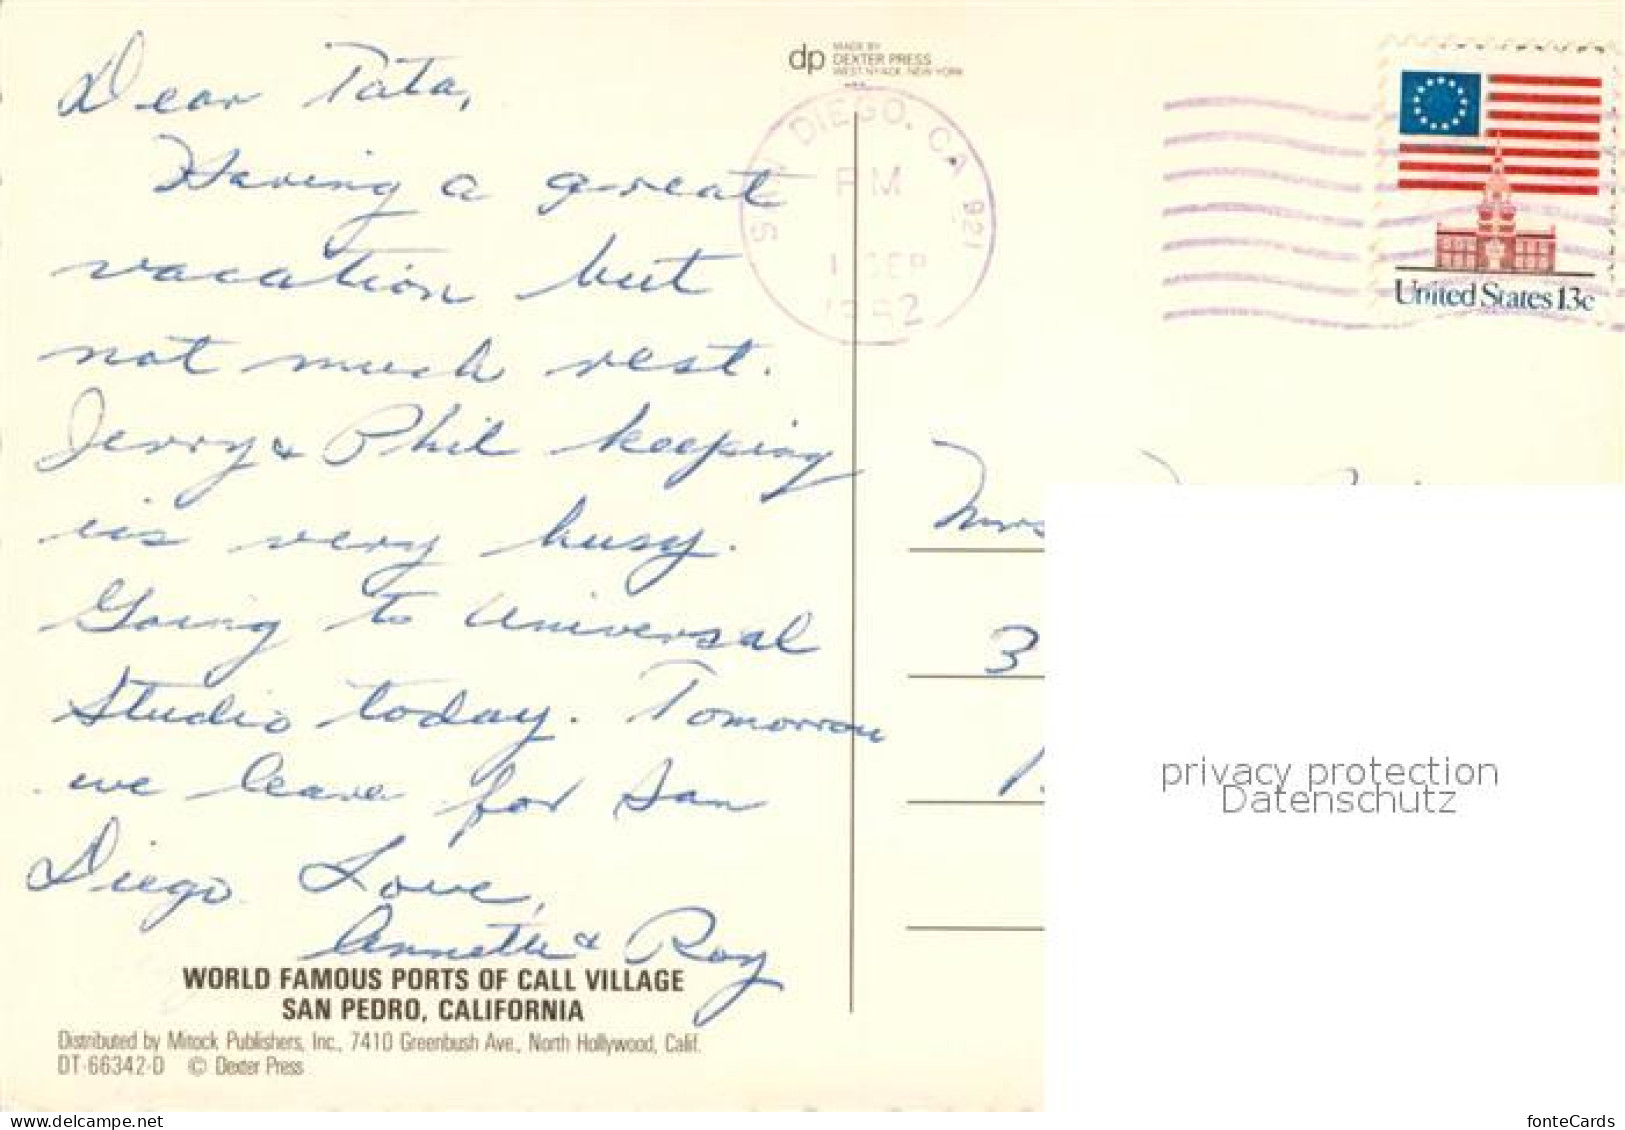 Dear Tata,
Having a great
vacation but
not much rest.
Jerry & Phil keeping
us very busy.
Going to Universal
Studio today. Tomorrow
we leave for San
Diego. Love,
Annette & Roy
WORLD FAMOUS PORTS OF CALL VILLAGE
SAN PEDRO, CALIFORNIA
Distributed by Mitock Publishers, Inc., 7410 Greenbush Ave., North Hollywood, Calif.
DT-66342-D © Dexter Press
dp MADE BY
DEXTER PRESS
WEST NYACK, NEW YORK
SAN DIEGO, CA 921
PM
1 SEP
1982
United States 13c
Mrs
3
privacy protection
Datenschutz
www.delcampe.net
fonteCards